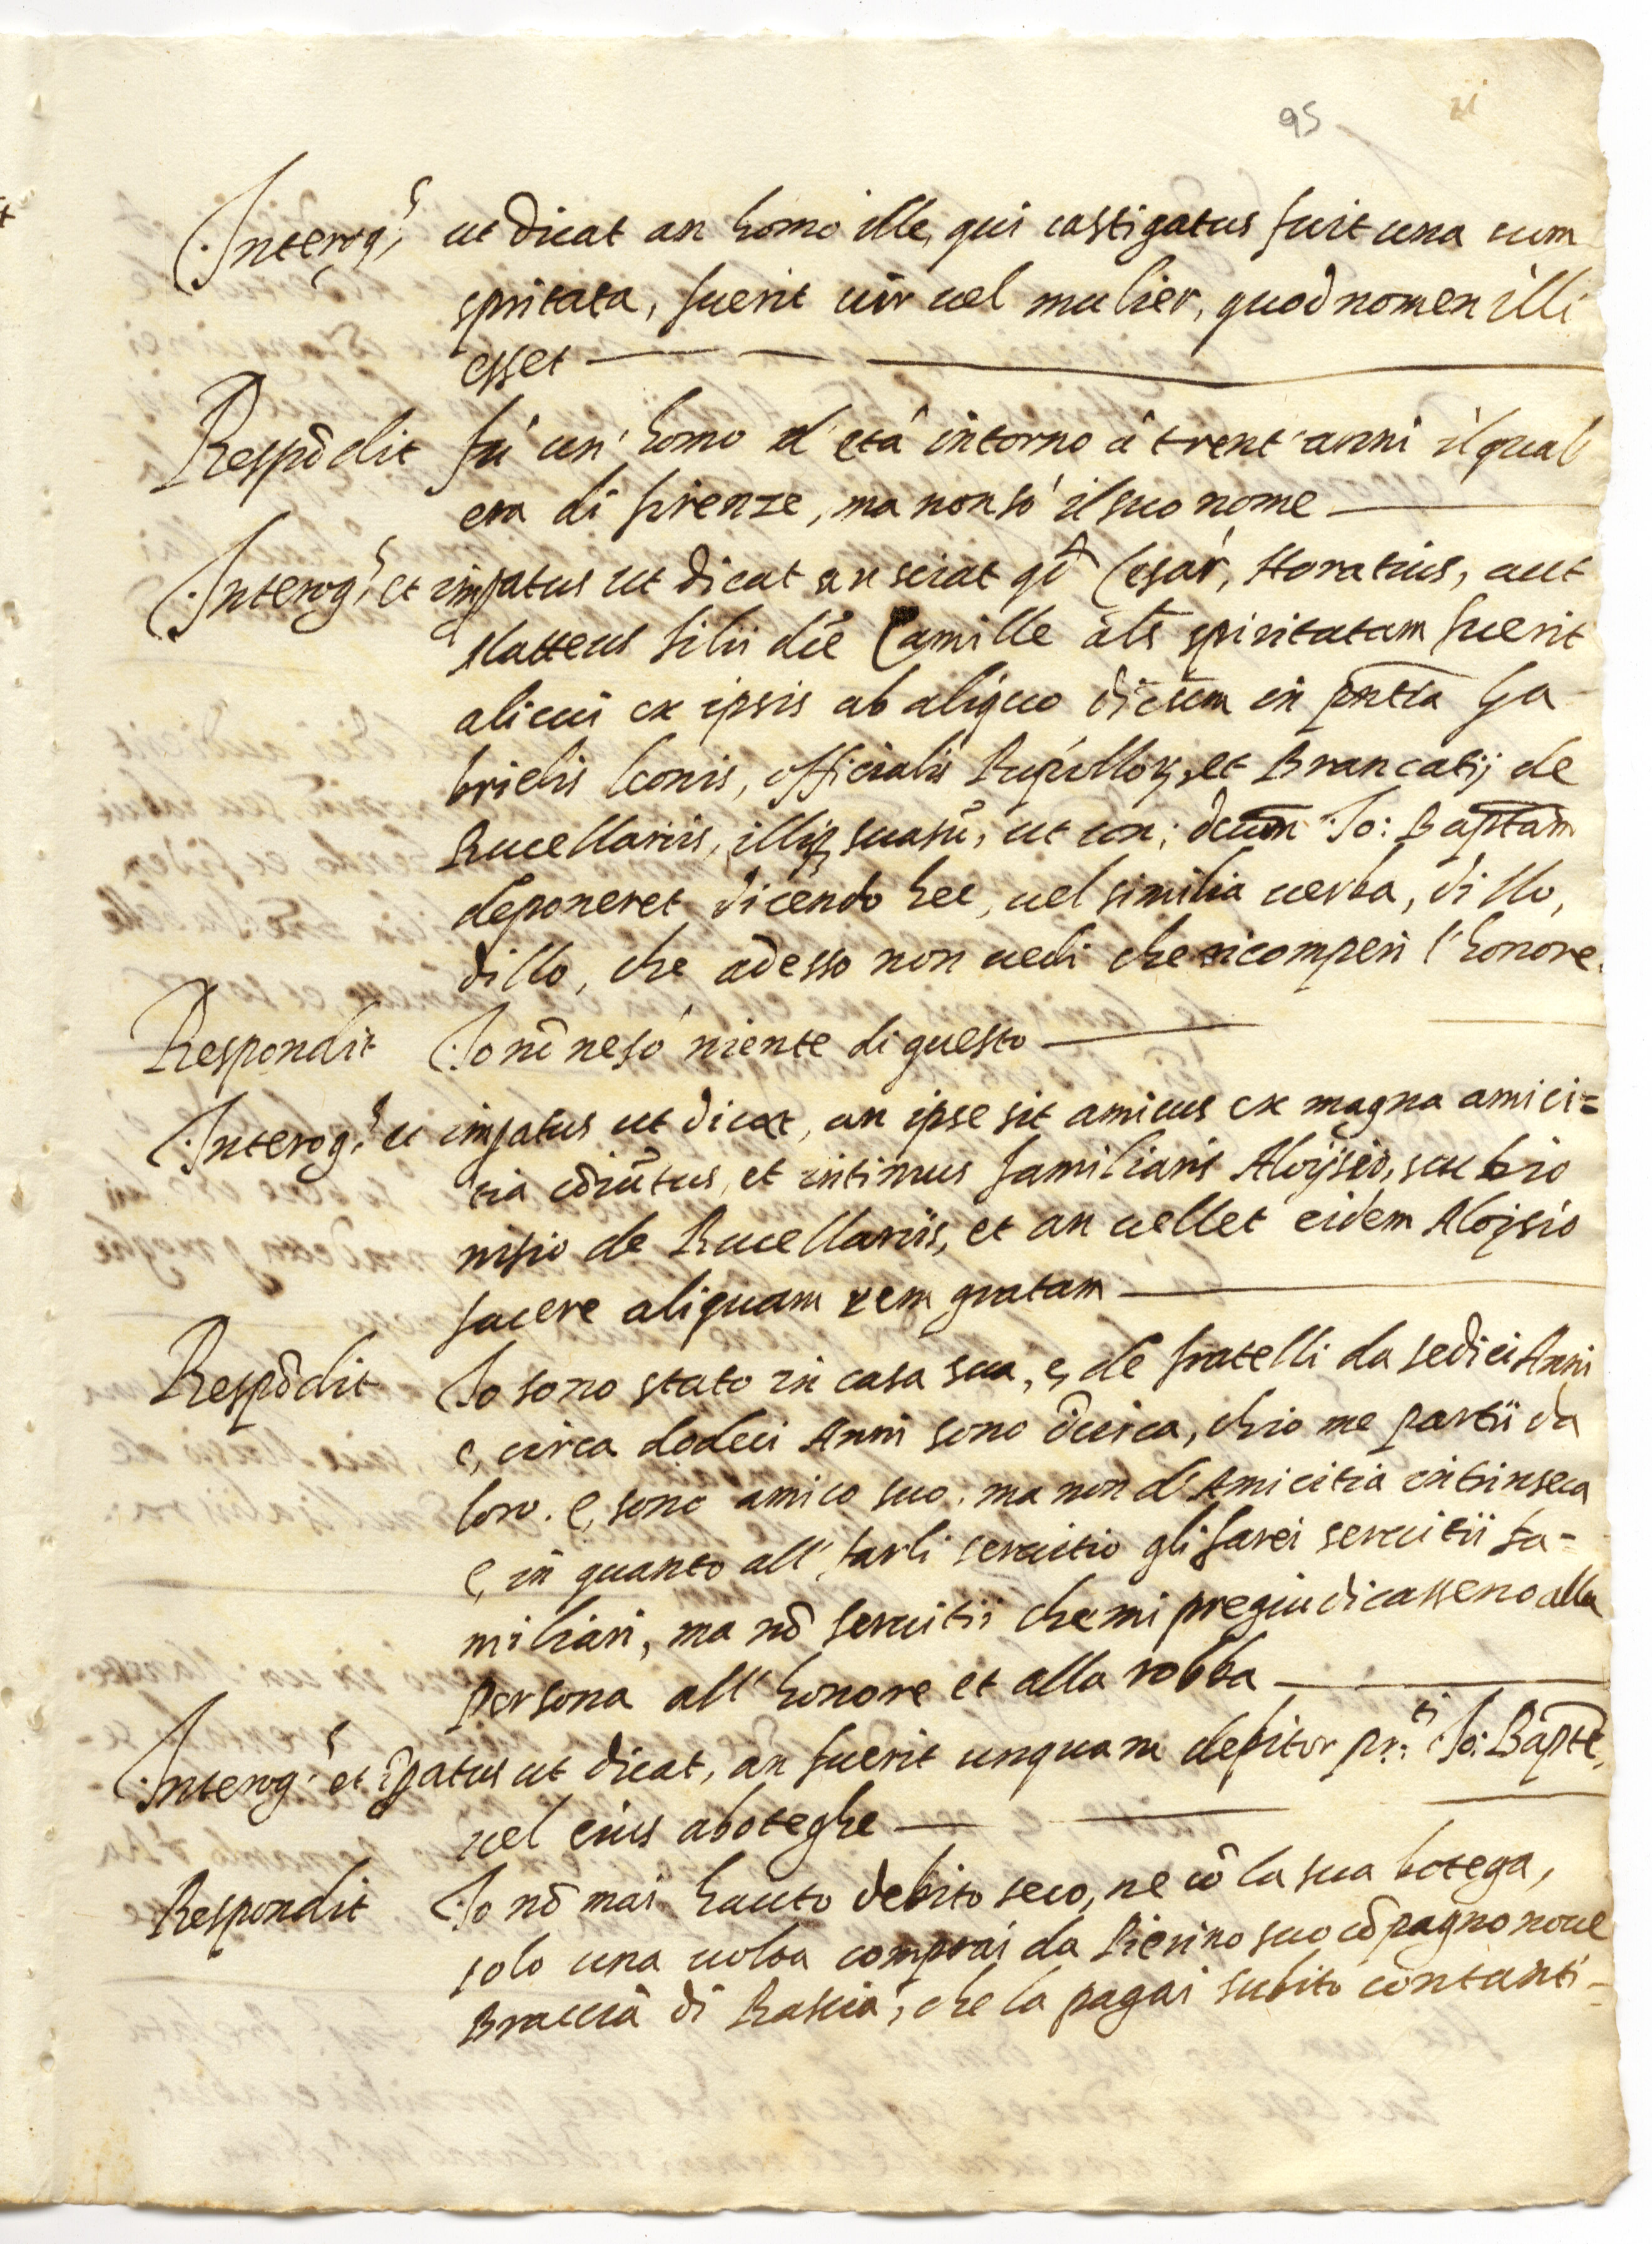 95
Interog.s ut dicat an homo ille, qui castigatus fuit una cum
spritata, fuerit uir uel mulier, quod nomen illi
esset
Respōdit fù un' homo d'età intorno à trent'anni il qual
era di firenze, ma non so il suo nome
Interog.s et impatus ut dicat an sciat qd Cesar, Horatius, aut
Matteus filii dce Camille als spiritatam fuerit
alicui ex ipsis ab aliquo dictum in pntia Ga
brielis leonis, officialis Pupilloꝝ, et Brancatij de
Rucellariis, illisqꝫ suasū, ut con: dcum Jo: Baptam
deponeret dicendo hec, uel similia uerba, dillo,
dillo, che adesso non uedi che ricomperi l'honore.
Respondit Jo nō ne so niente di questo
Interog.s et impatus ut dicat, an ipse sit amicus ex magna amici=
tia cōiūtus, et intimus familiaris Aloysio, seu bio
nisio de Rucellariis, et an uellet eidem Aloysio
facere aliquam rem gratam
Respōdit Jo sono stato in casa sua, e, de fratelli da sedici Anni
e, circa dodeci Anni sono ī circa, chio me partii da
loro. e, sono amico suo, ma non d'Amicitia intrinseca
e, in quanto all', farli seruitio gli farei seruitii fa=
miliari, ma nō seruitii che mi pregiudicasseno alla
persona all'honore et alla robba
Interog.s et īpatus ut dicat, an fuerit unquam debitor pr.ti Jo: Bapte,
uel eius aboteghe
Respondit Jo nō mai hauto debito seco, ne cō la sua botega,
solo una uolta comprai da Pierino suo cōpagno noue
Braccia di Rascia, che la pagai subito contanti-